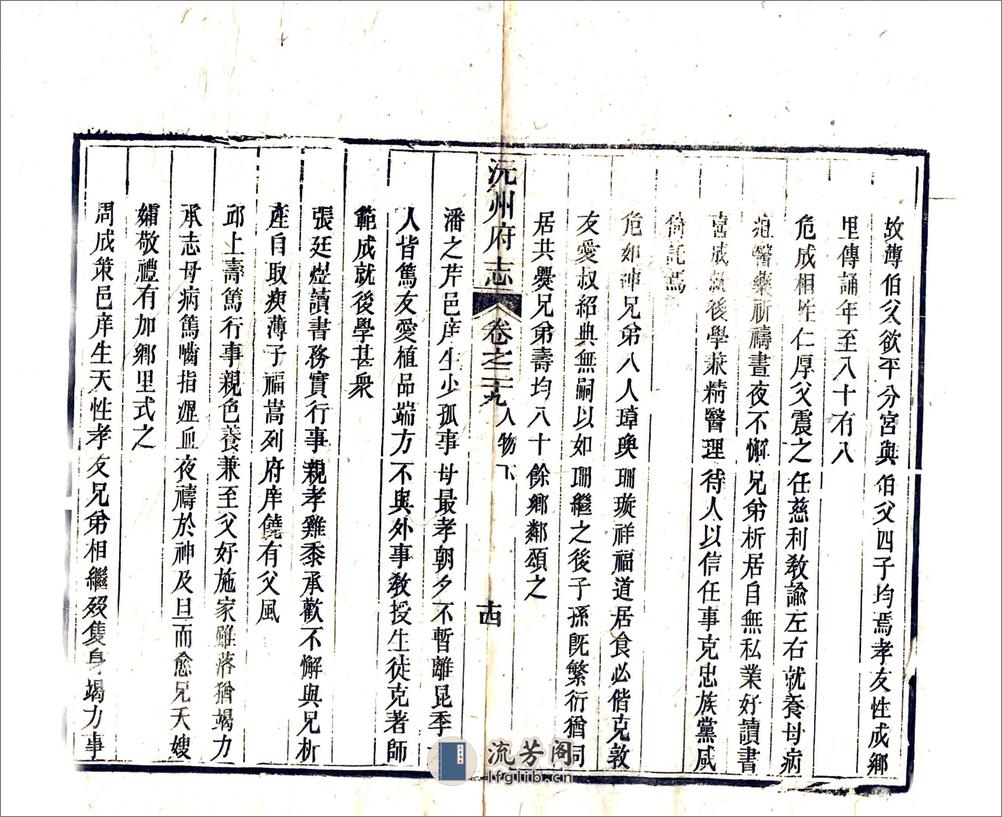 故尊伯父欲平分宮與伯父四子均焉孝友性成鄉
里傳誦年至八十有八
危成相性仁厚父震之任慈利教諭左右就養母病
醫藥祈禱晝夜不懈兄弟析居自無私業好讀書
喜成就後學兼精醫理待人以信任事克忠族黨咸
倚託焉
危如 兄弟八人璋瑍珊璇祥福道居食必偕克敦
友愛叔紹典無嗣以如珊繼之後子孫既繁衍猶同
居共爨兄弟壽均八十餘鄉鄰頌之
沅州府志 卷之二十九 人物下 十四
潘之芹邑庠生少孤事母最孝朝夕不暫離昆季
人皆篤友愛植品端方不與外事教授生徒克著師
範成就後學甚衆
張廷煜讀書務實行事親孝雞黍承歡不懈與兄析
產自取瘐薄子福嵩列府庠饒有父風
邱上壽篤行事親色養兼至父好施家雖落猶竭力
承志母病篤嚙指瀝血夜禱於神及旦而愈兄夭嫂
孀敬禮有加鄉里式之
周成策邑庠生天性孝友兄弟相繼歿隻身竭力事
流芳阁
lfglib.cn